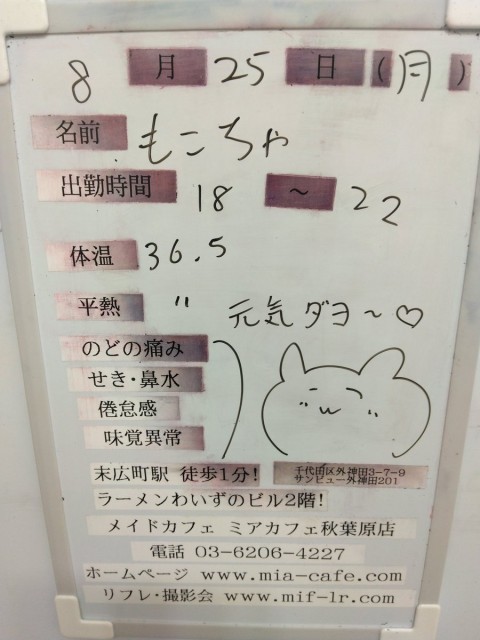 8月25日(月)
名前 もこちゃ
出勤時間 18 ~ 22
体温 36.5
平熱 〃 元気ダヨ~♡
のどの痛み
せき・鼻水
倦怠感
味覚異常
末広町駅 徒歩1分! 千代田区外神田3-7-9
サンビュー外神田201
ラーメンわいずのビル2階!
メイドカフェ ミアカフェ秋葉原店
電話 03-6206-4227
ホームページ www.mia-cafe.com
リフレ・撮影会 www.mif-lr.com